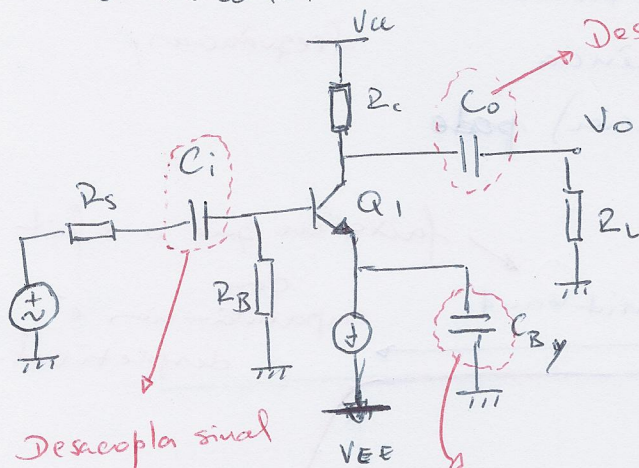 Vcc
Rc
Co
Des
Vo
Ci
Rs
Q1
RL
RB
CBy
Desacopla sinal
VEE